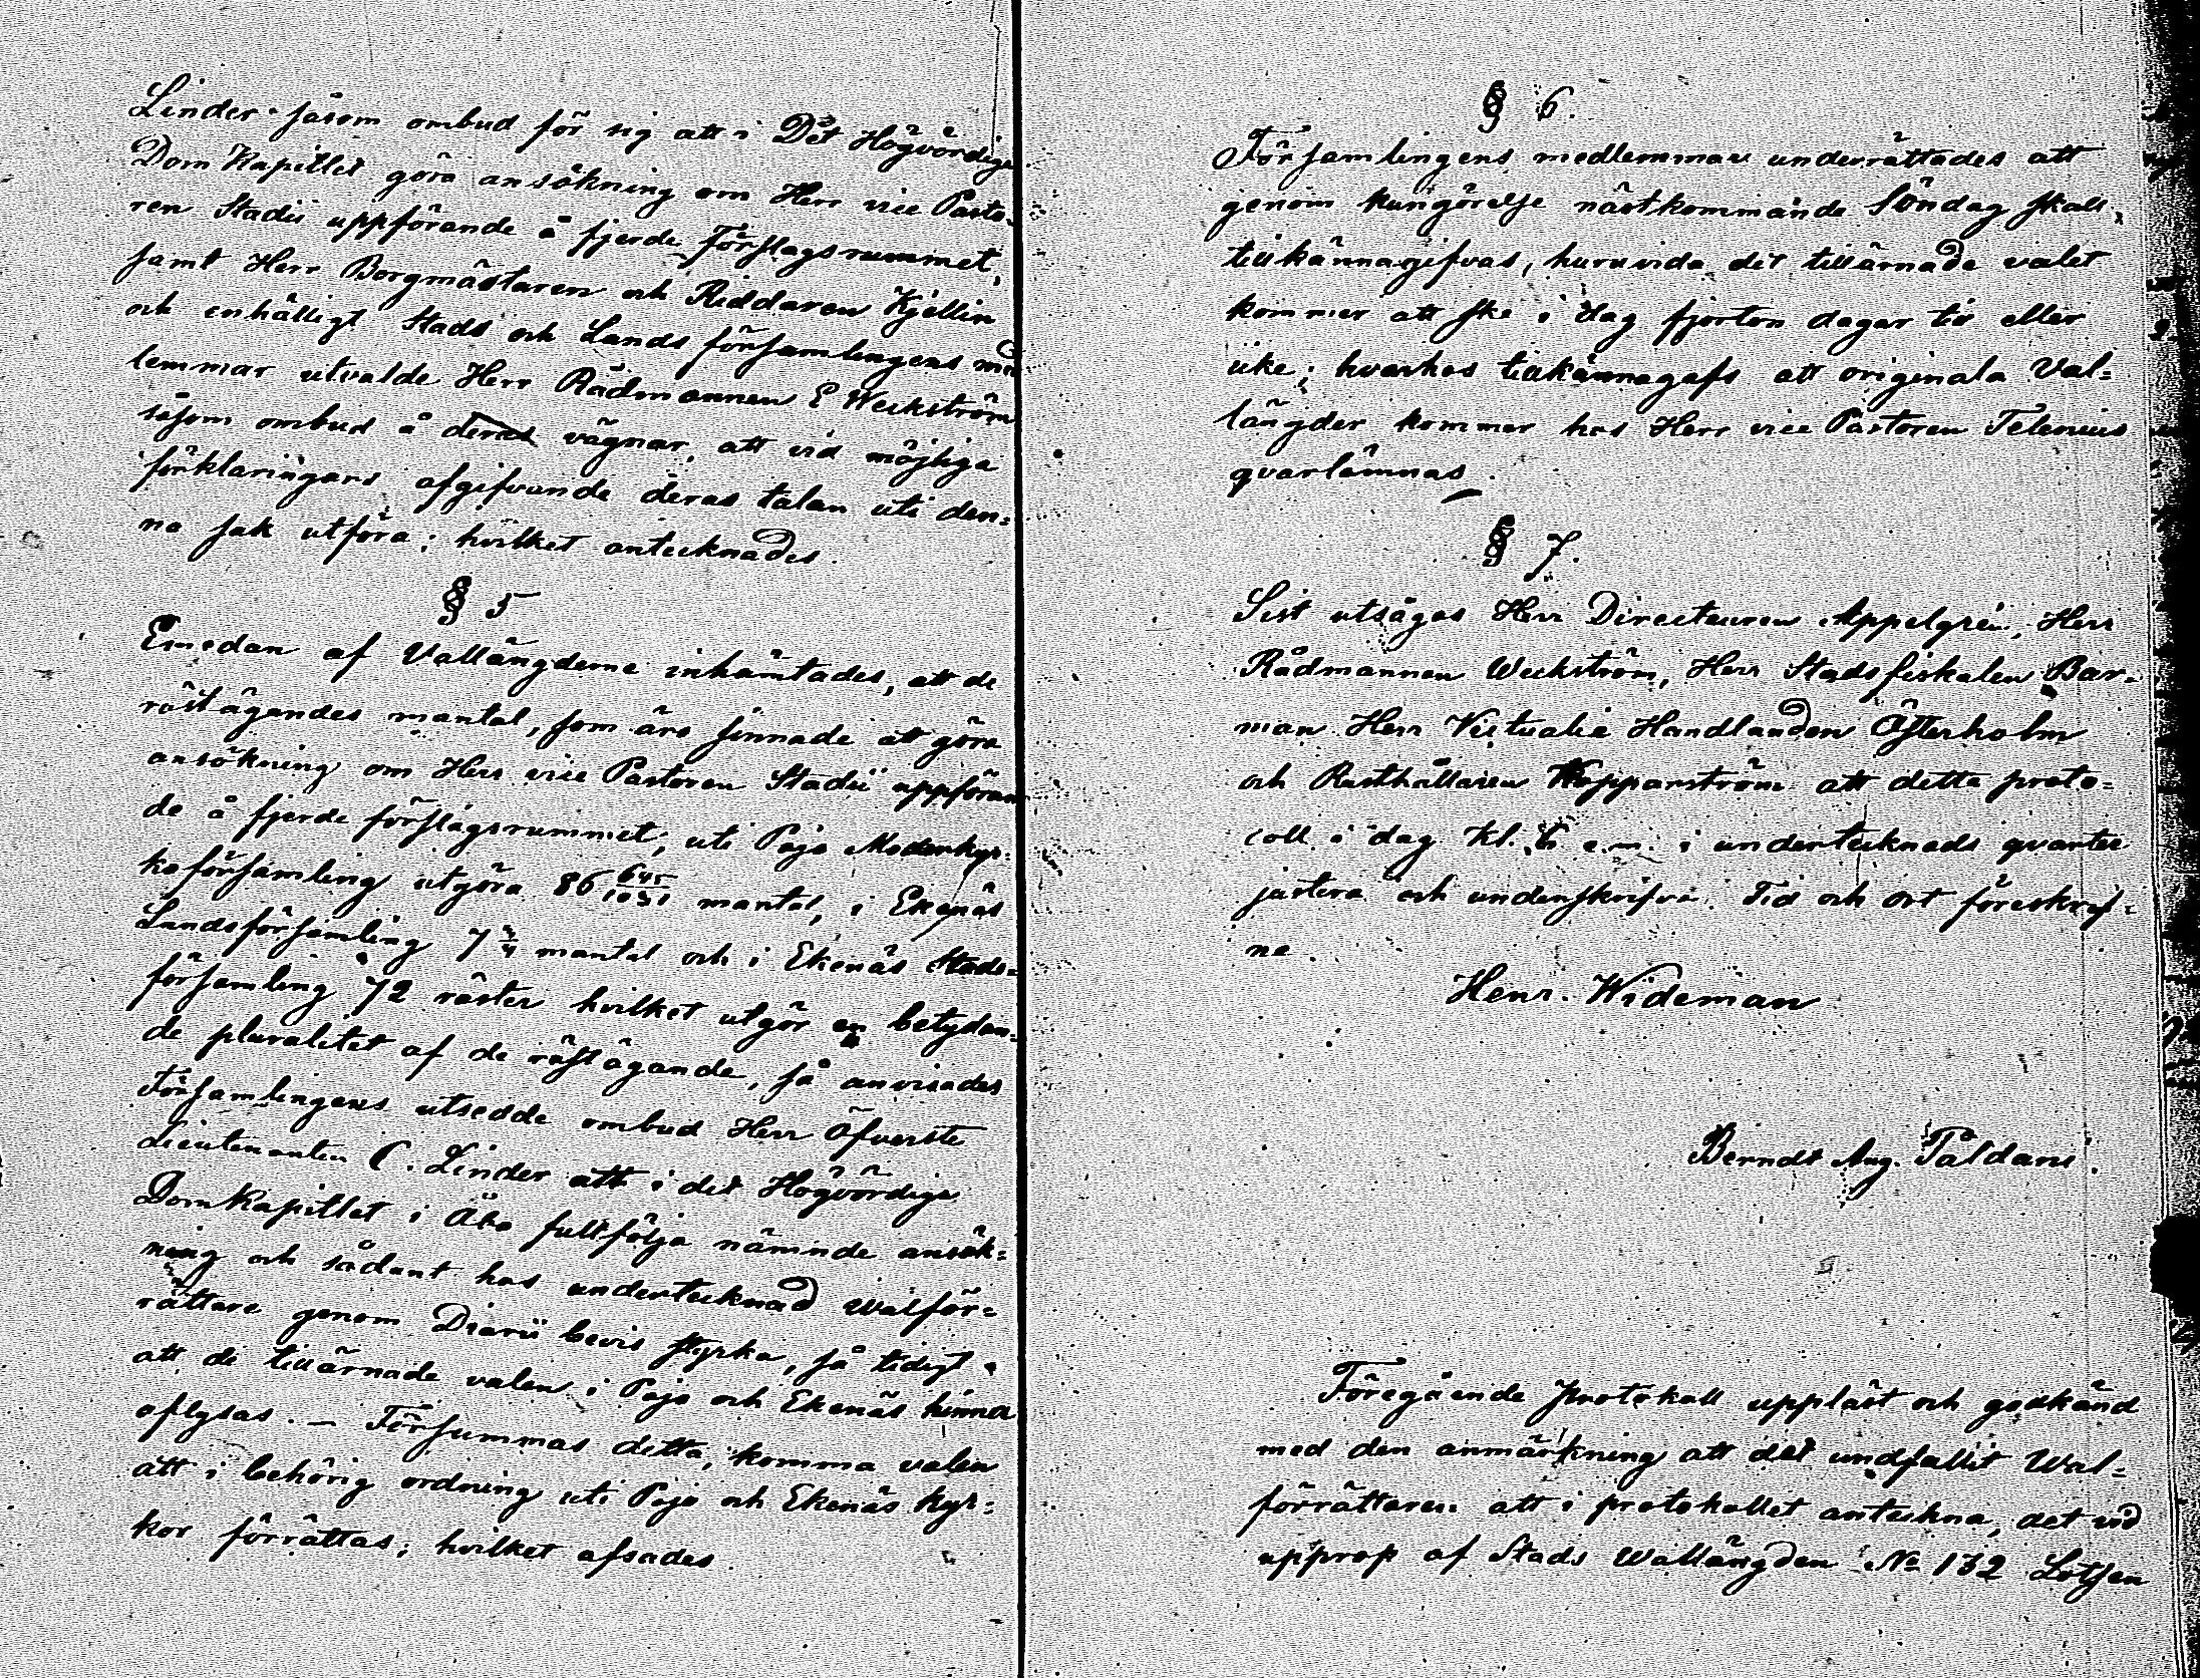 Linder såsom ombud för sig att i Det Högvördiga
Dom Kapitlet göra ansökning om Herr vice Pasto-
ren Stadii uppförande å fjerde förslagsrummet,
samt Herr Borgmästaren och Riddaren Kjellin
och enhälligt Stads och Lands församlingens med
lemmar utvalde Herr Rådmannen E Weckström
såsom ombud å deras vägnar, att vid möjliga
förklaringars afgifvande deras talan uti den-
na sak utföra; hvilket antecknades.
§ 5
Emedan af Vallängderne inhämtades, att de
röstägandes mantal, som äro sinnade att göra
ansökning om Herr vice Pastoren Stadii uppföran
de å fjerde förslagsrummet, uti Pojo Moderkyr-
koförsamling utgöra 86 mantal, i Ekenäs
Landsförsamling 7 3/4 mantal och i Ekenäs Stads-
församling 72 röster hvilket utgör en betydan-
de pluralitet af de röstägande, så anvisades
Församlingens utsedde ombud Herr Öfverste
Lieutenanten C. Linder att i det Högvördiga
Domkapitlet i Åbo fullfölja nämnde ansök-
ning och sådant hos undertecknad Valför-
rättare genom Diarii bevis styrka, så tidigt
att de tillärnade valen i Pojo och Ekenäs hinna
aflysas. — Försummas detta, komma valen
att i behörig ordning uti Pojo och Ekenäs kyr-
kor förrättas; hvilket afsades
§ 6.
Församlingens medlemmar underrättades att
genom kungörelse nästkommande Söndag skall
tillkännagifvas, huruvida det tillärnade valet
kommer att ske i dag fjorton dagar till eller
icke; hvarhos tillkännagafs att originala Val-
längder kommer hos Herr vice Pastoren Telenius
qvarlämnas.
§ 7.
Sist utsågos Herr Directeuren Appelgrén, Herr
Rådmannen Weckström, Herr Stadsfiskalen Bar-
man Herr Victualie Handlanden Åkerholm
och Rusthållaren Kopparström att detta proto-
coll i dag Kl. 6 e.m. i undertecknads qvarter
justera och underskrifva. Tid och ort föreskref-
ne.
Henr. Wideman
Berndt Aug. Paldani.
Föregående protokoll uppläst och godkänd
med den anmärkning att det undfallit Wal-
förrättaren att i protokollet anteckna, det vid
upprop af Stads Wallängden No 132 Lotsen